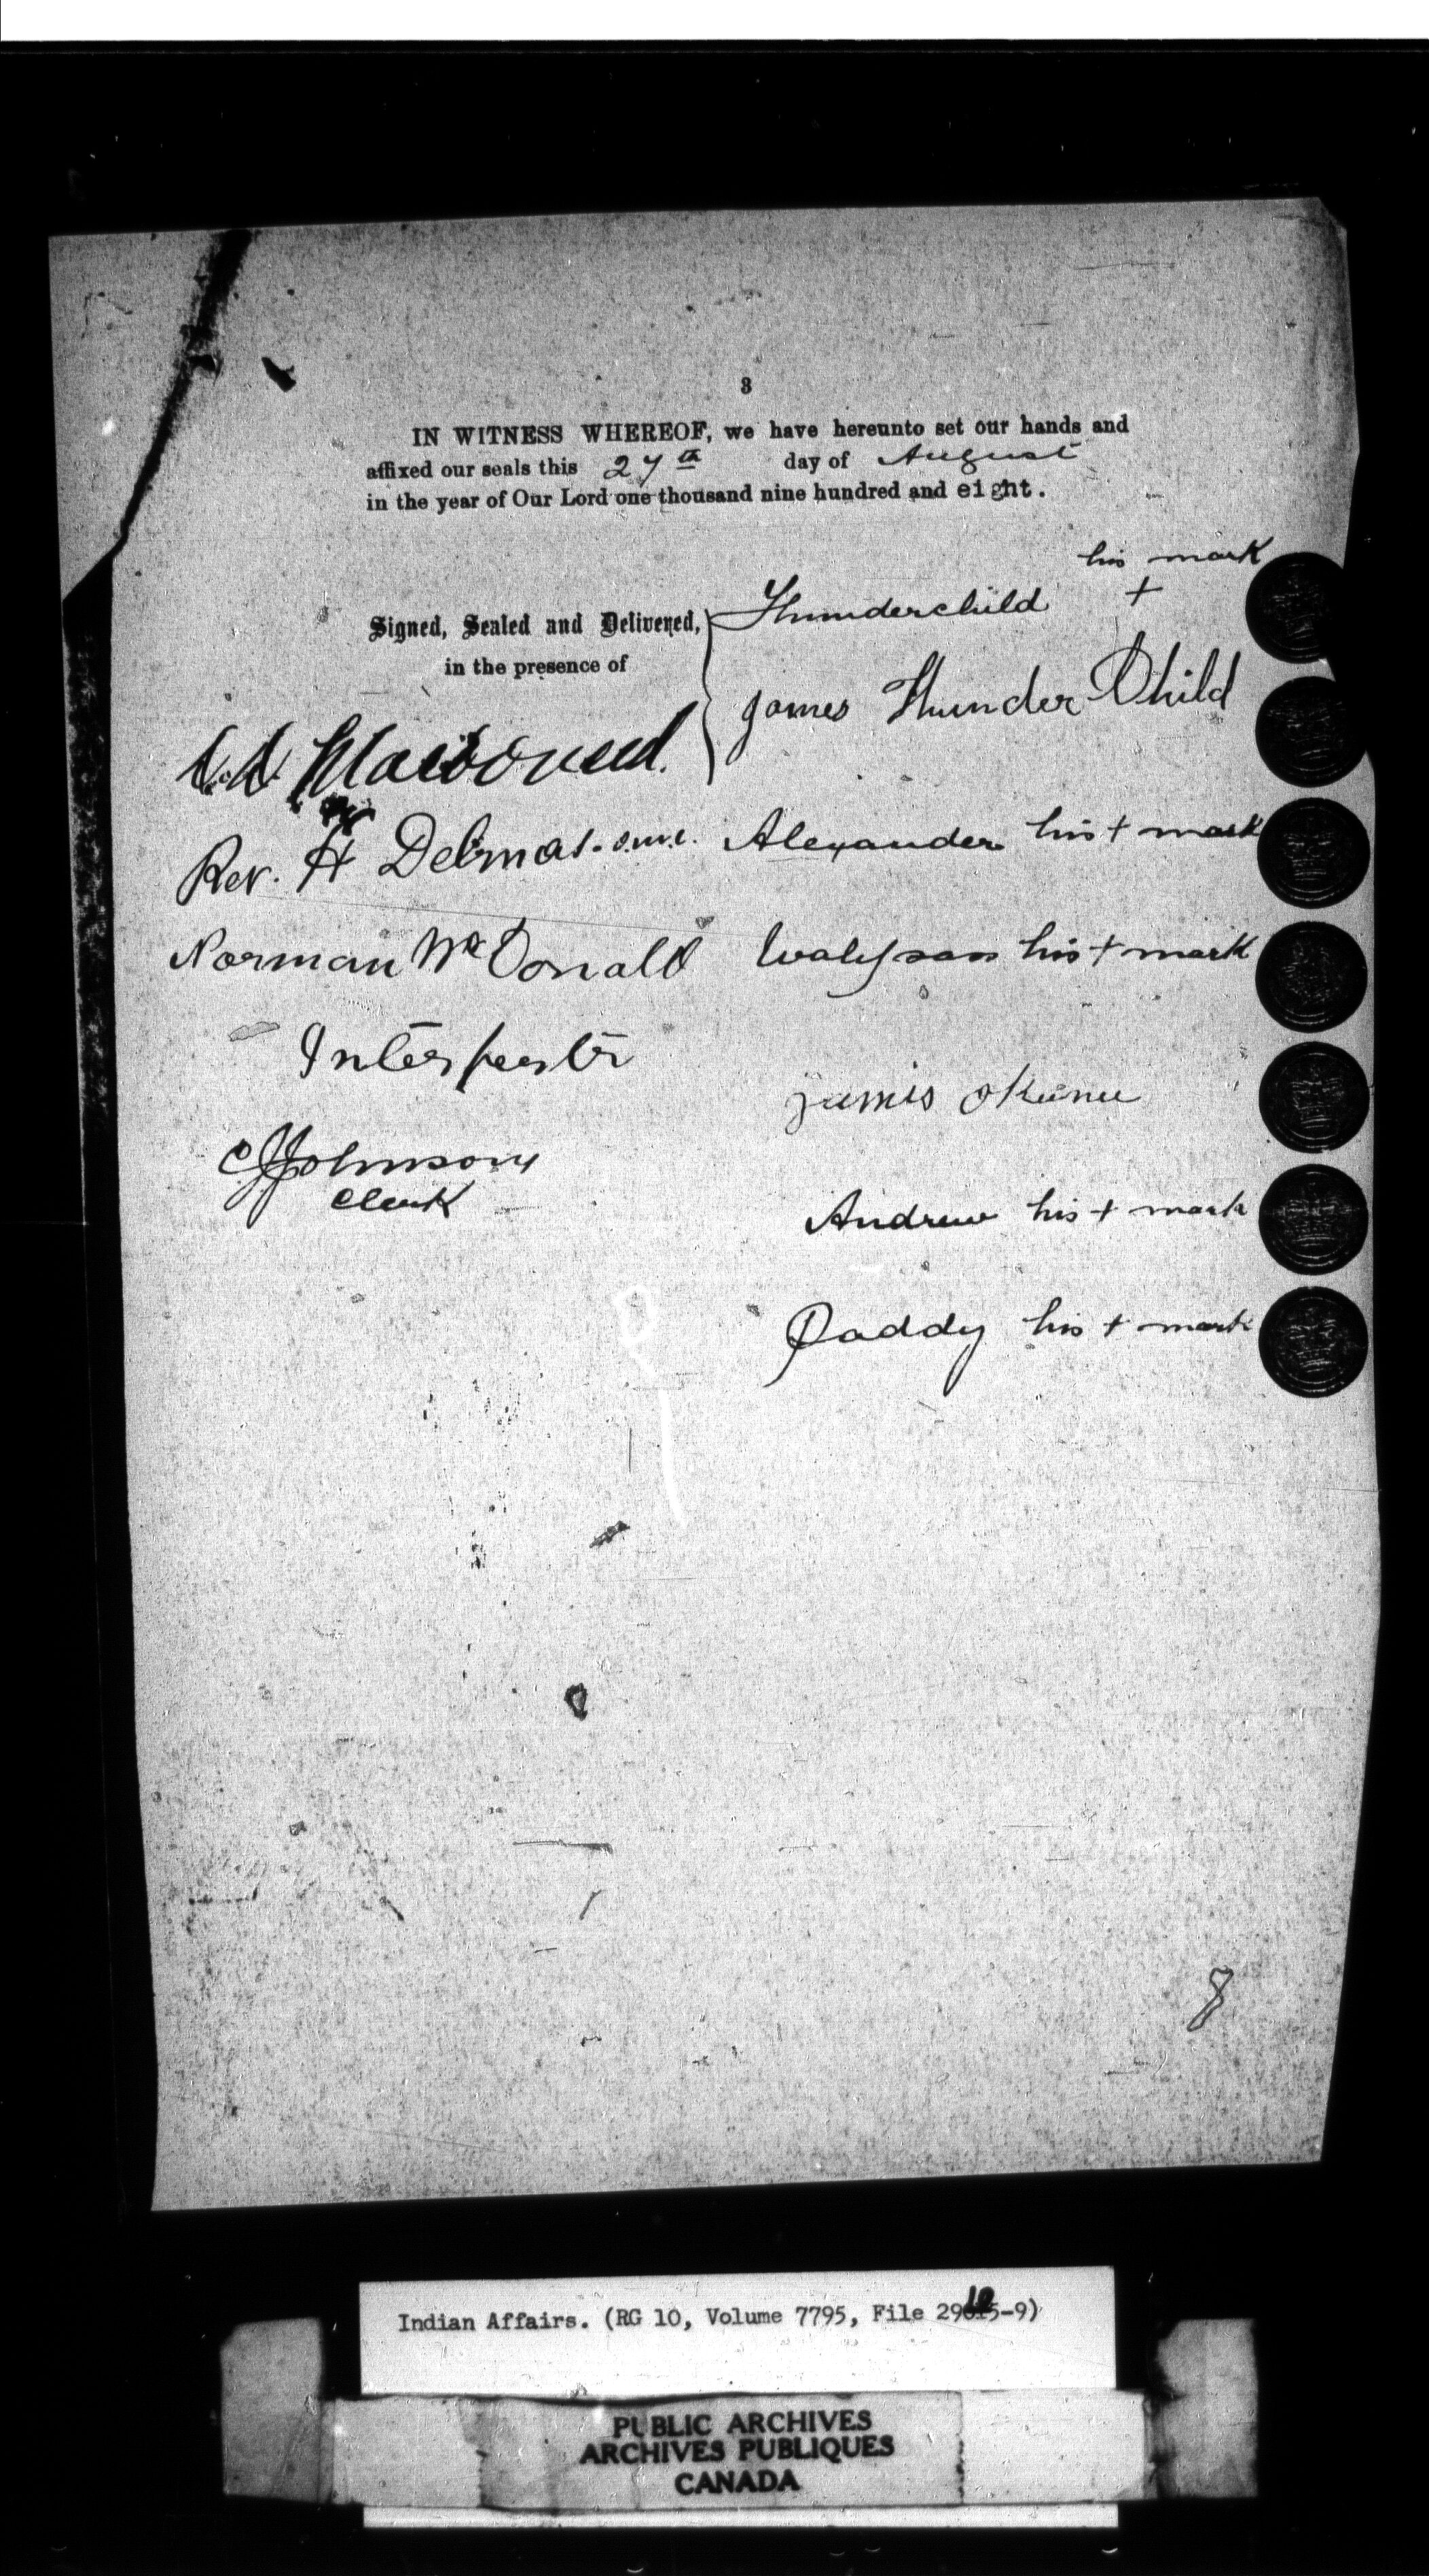 3
IN WITNESS WHEREOF, we have hereunto set our hands and
affixed our seals this 27th day of August
in the year of Our Lord one thousand nine hundred and eight.
his mark
Signed, Sealed and Delivered, Thunderchild +
in the presence of
James Thunder Child
Rev. H Delmas. o.m.i. Alexander his + mark
Norman McDonald his + mark
Interpreter
James
CJJohnson
Clerk
Andrew his + mark
Paddy his + mark
8
Indian Affairs. (RG 10, Volume 7795, File 29105-9)
PUBLIC ARCHIVES
ARCHIVES PUBLIQUES
CANADA